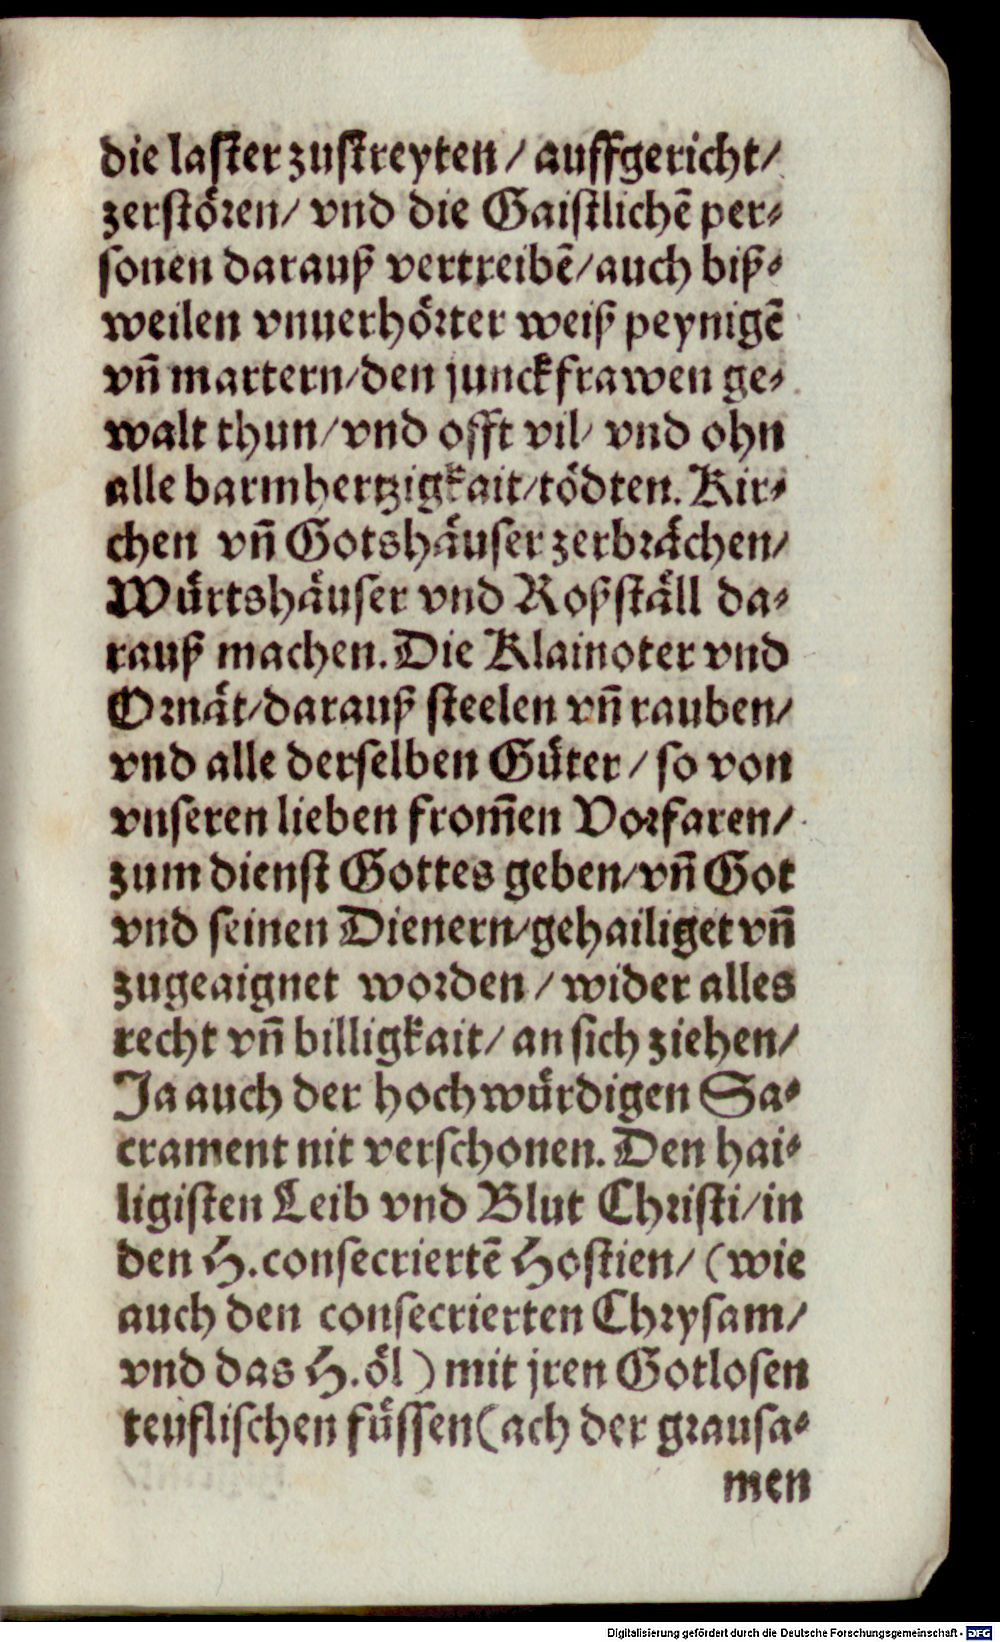 die laster zustreyten / auffgericht /
zerstören / vnd die Gaistlichẽ per⸗
sonen darauß vertreibẽ / auch biß⸗
weilen vnuerhörter weiß peynigẽ
vñ martern / den junckfrawen ge⸗
walt thun / vnd offt vil / vnd ohn
alle barmhertzigkait / tödten. Kir⸗
chen vñ Gotshäuser zerbrächen /
Würtshäuser vnd Roßställ da⸗
rauß machen. Die Klainoter vnd
Ornät / darauß steelen vñ rauben /
vnd alle derselben Güter / so von
vnseren lieben from̃en Vorfaren /
zum dienst Gottes geben / vñ Got
vnd seinen Dienern / gehailiget vñ
zugeaignet worden / wider alles
recht vñ billigkait / an sich ziehen /
Ja auch der hochwürdigen Sa⸗
crament nit verschonen. Den hai⸗
ligisten Leib vnd Blut Christi / in
den H. consecriertẽ Hostien / (wie
auch den consecrierten Chrysam /
vnd das H. öl) mit jren Gotlosen
teuflischen füssen (ach der grausa⸗
men
Digitalisierung gefördert durch die Deutsche Forschungsgemeinschaft - DFG